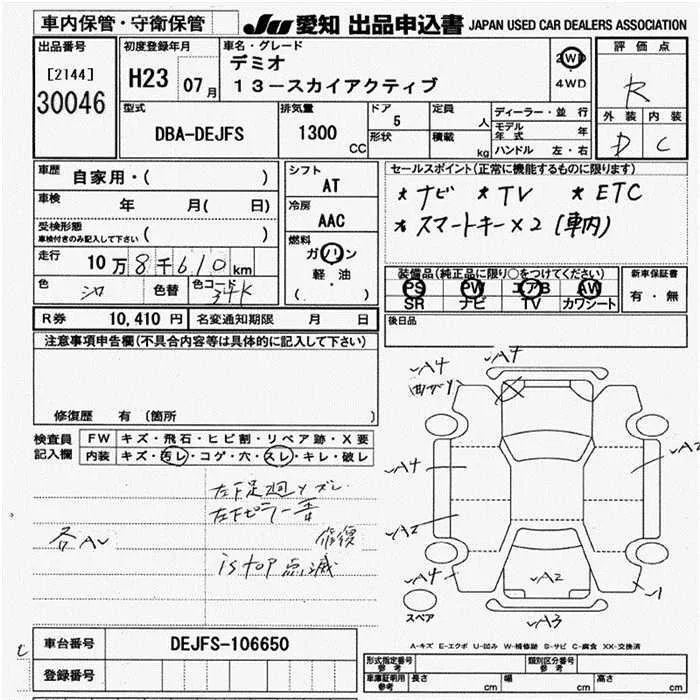 車内保管・守衛保管
JU 愛知 出品申込書 JAPAN USED CAR DEALERS ASSOCIATION
出品番号
[2144]
30046
初度登録年月
H23 07月
車名・グレード
デミオ
13-スカイアクティブ
2WD
4WD
評価点
R
外装 内装
D C
型式
DBA-DEJFS
排気量
1300
CC
ドア
5
形状
定員
人
積載
kg
ディーラー・並行
モデル年式 年
ハンドル 左・右
車歴
自家用・( )
車検
年 月( 日)
受検形態
車検付きのみ記入して下さい ( )
走行
10万8千610km
色
シロ
色替
色コード
34K
シフト
AT
冷房
AAC
燃料
ガソリン
軽・油
( )
セールスポイント(正常に機能するものに限ります)
* ナビ * TV * ETC
* スマートキー×2 (車内)
装備品(純正品に限り○をつけてください)
PS PW エアB AW
SR ナビ TV カワシート
新車保証書
有・無
R券 10,410円 名変通知期限 月 日
後日品
注意事項申告欄(不具合内容等は具体的に記入して下さい)
修復歴 有 〔箇所 〕
検査員
記入欄
FW キズ・飛石・ヒビ割・リペア跡・X要
内装 キズ・汚レ・コゲ・穴・スレ・キレ・破レ
左下足廻りズレ
左下ピラー
修復
各AV
is top 点滅
A4
A4
曲がり
A4
A2
A2
A4
A2
1
A3
スペア
A-キズ E-エクボ U-凹み W-補修跡 S-サビ C-腐食 XX-交換済
車台番号
DEJFS-106650
登録番号
形式指定番号
参考
類別区分番号
参考
車庫証明用
参考
長さ cm 幅 cm 高さ cm